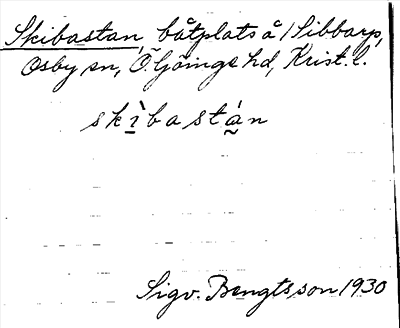 Skibastan, båtplats å /Sibbarp,
Osby sn, Ö. Göinge hd, Krist. l.
skìbastán
Sigv. Bengtsson 1930